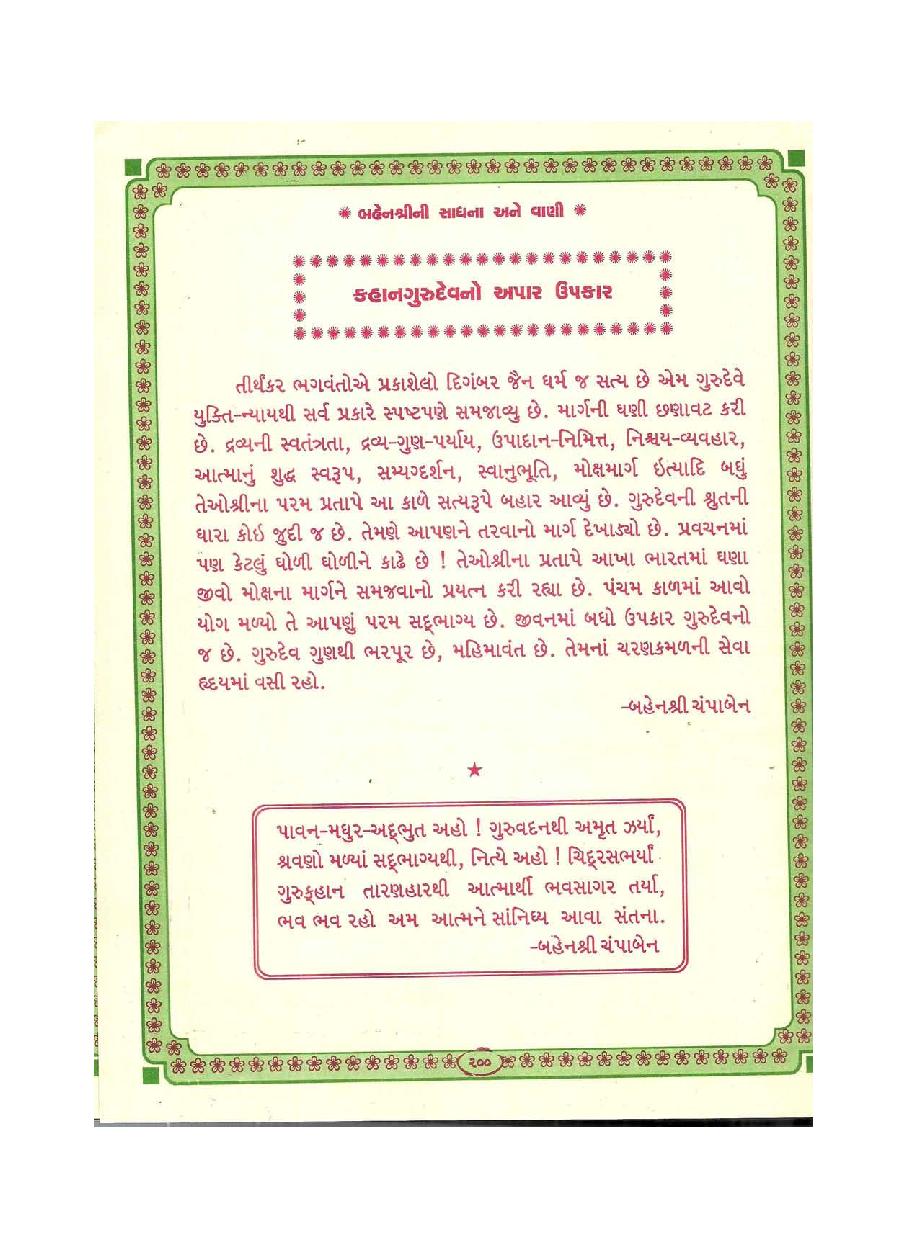 ❋ બહેનશ્રીની સાધના અને વાણી ❋
કહાનગુરુદેવનો અપાર ઉપકાર
તીર્થંકર ભગવંતોએ પ્રકાશેલો દિગંબર જૈન ધર્મ જ સત્ય છે એમ ગુરુદેવે
યુક્તિ-ન્યાયથી સર્વ પ્રકારે સ્પષ્ટપણે સમજાવ્યુ છે. માર્ગની ઘણી છણાવટ કરી
છે. દ્રવ્યની સ્વતંત્રતા, દ્રવ્ય-ગુણ-પર્યાય, ઉપાદાન-નિમિત્ત, નિશ્ચય-વ્યવહાર,
આત્માનું શુદ્ધ સ્વરૂપ, સમ્યગ્દર્શન, સ્વાનુભૂતિ, મોક્ષમાર્ગ ઇત્યાદિ બધું
તેઓશ્રીના પરમ પ્રતાપે આ કાળે સત્યરૂપે બહાર આવ્યું છે. ગુરુદેવની શ્રુતની
ધારા કોઇ જુદી જ છે. તેમણે આપણને તરવાનો માર્ગ દેખાડ્યો છે. પ્રવચનમાં
પણ કેટલું ઘોળી ઘોળીને કાઢે છે ! તેઓશ્રીના પ્રતાપે આખા ભારતમાં ઘણા
જીવો મોક્ષના માર્ગને સમજવાનો પ્રયત્ન કરી રહ્યા છે. પંચમ કાળમાં આવો
યોગ મળ્યો તે આપણું પરમ સદ્ભાગ્ય છે. જીવનમાં બધો ઉપકાર ગુરુદેવનો
જ છે. ગુરુદેવ ગુણથી ભરપૂર છે, મહિમાવંત છે. તેમનાં ચરણકમળની સેવા
હૃદયમાં વસી રહો.
-બહેનશ્રી ચંપાબેન
★
પાવન-મધુર-અદ્ભુત અહો ! ગુરુવદનથી અમૃત ઝર્યાં,
શ્રવણો મળ્યાં સદ્ભાગ્યથી, નિત્યે અહો ! ચિદ્રસભર્યાં
ગુરુક્હાન તારણહારથી આત્માર્થી ભવસાગર તર્યા,
ભવ ભવ રહો અમ આત્મને સાંનિધ્ય આવા સંતના.
-બહેનશ્રી ચંપાબેન
૨૦૦